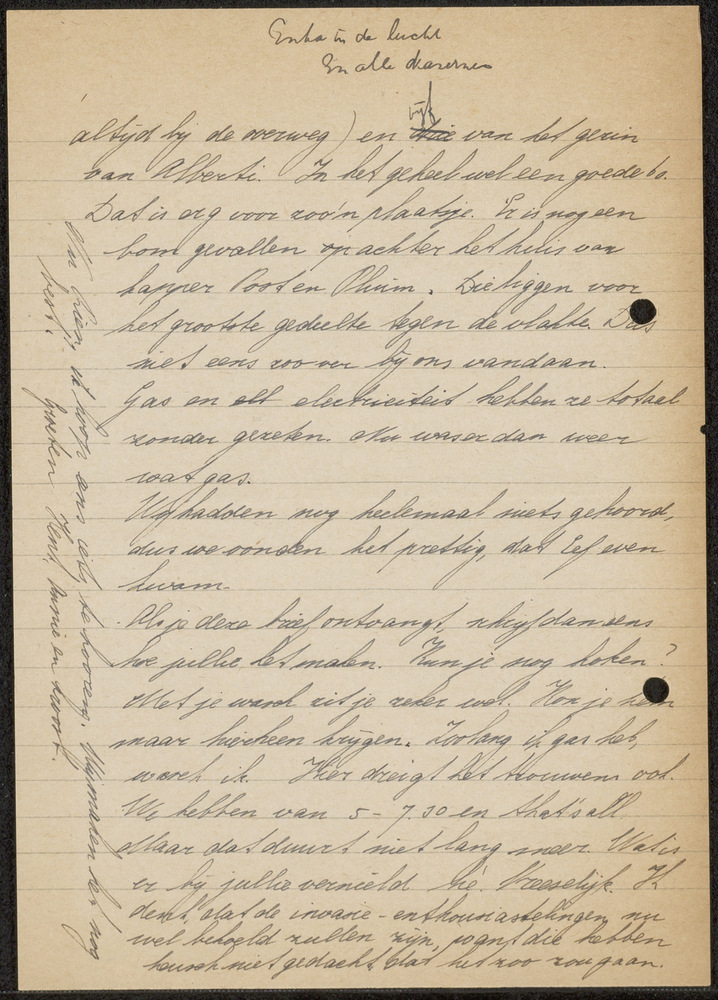 Enka in de lucht
En alle kazernes
vijf
altijd bij de overweg) en drie van het gezin
van Alberti. In het geheel wel een goede 60.
Dat is erg voor zoo'n plaatsje. Er is nog een
bom gevallen op achter het huis van
kapper Poot en Pluim. Die liggen voor
het grootste gedeelte tegen de vlakte. Dus
niet eens zoo ver bij ons vandaan.
Gas en elt electriciteit hebben ze totaal
zonder gezeten. Nu was er dan weer
wat gas.
Wij hadden nog heelemaal niets gehoord,
dus we vonden het prettig, dat Eef even
kwam.
Als je deze brief ontvangt, schrijf dan eens
hoe jullie het maken. Kun je nog koken?
Met je wasch zit je zeker wel. Kon je hem
maar hierheen krijgen. Zoolang ik gas heb,
wasch ik. Hier dreigt het trouwens ook.
We hebben van 5 - 7.30 en that's all.
Maar dat duurt niet lang meer. Wat is
er bij jullie vernield hè. Vreeselijk. Ik
denk, dat de invasie-enthousiastelingen nu
wel bekoeld zullen zijn, want die hebben
heusch niet gedacht, dat het zoo zou gaan.
Nu, ik hoop eens iets te hooren. Wij maken het nog
best.
Groeten Henk, Annie en